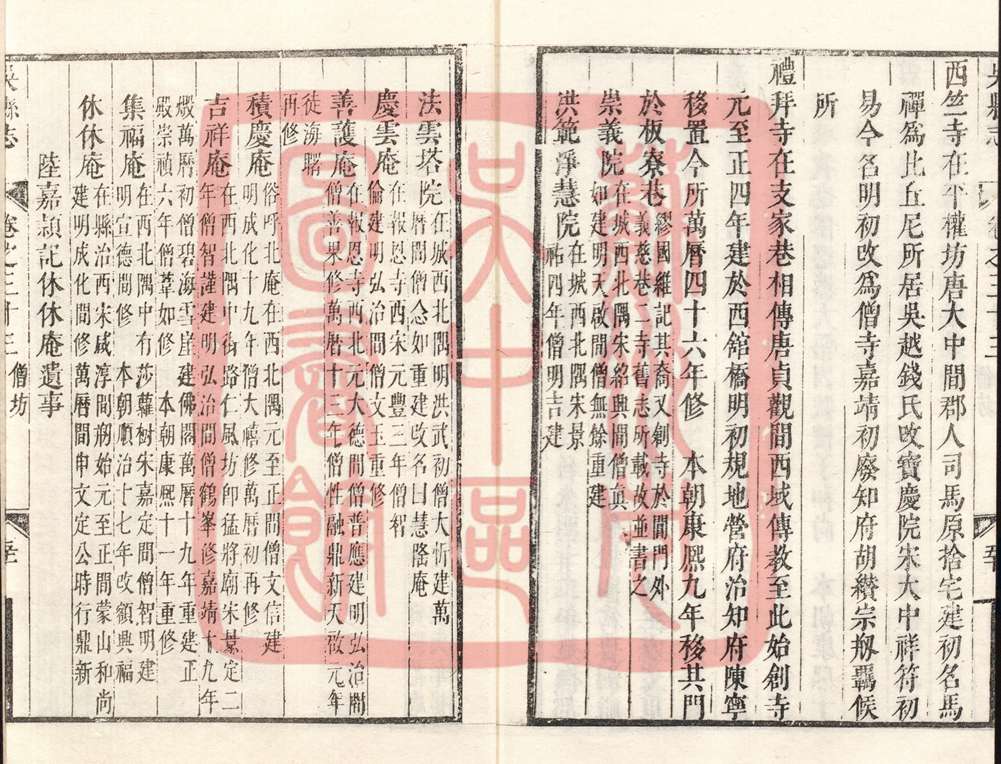 西竺寺在平權坊唐大中間郡人司馬原捨宅建初名馬
禪為比丘尼所居吳越錢氏改寶慶院宋大中祥符初
易今名明初改為僧寺嘉靖初廢知府胡纘宗剏覊候
所
禮拜寺在支家巷相傳唐貞觀間西域傳教至此始創寺
元至正四年建於西舘橋明初規地營府治知府陳寧
移置今所萬曆四十六年修　本朝康熙九年移其門
於板寮巷繆國維記其裔又剏寺於閶門外義慈巷一二間舊志所載故並書之
崇義院在城西北隅宋紹興間僧真如建明天啟間僧無餘重建
洪範淨慧院在城西北隅宋景祐四年僧明吉建
法雲塔院在城西北隅明洪武初僧大忻建萬曆間僧念如重建改名曰慧隂庵
慶雲庵在報恩寺西宋元豐三年僧智倫建明弘治間僧文玉重修
善護庵在報恩寺西北元大德間僧普應建明弘治間僧善果修萬曆十三年僧性融鼎新天啟元年
徒海
再修
積慶庵俗呼北庵在西北隅元至正間僧信文建明成化十九年僧大禧修萬曆初再修
吉祥庵在西北隅中街路仁風坊即猛將廟宋景定二年僧智謹建明弘治間僧鶴峯修嘉靖十九年
燬萬曆初僧碧海雪崖建佛閣萬曆十九年重建正
殿崇禎六年僧葦如修　本朝康熙十一年重修
集福庵在西北隅中有莎蘿樹宋嘉定間僧智明建明宣德間修　本朝順治十七年改額典福
休休庵在縣治西宋咸淳間剏始元至正間蒙山和尚建明成化間修萬曆間申文定公時行鼎新
陸嘉頴記休休庵遺事
吳縣志
卷之三十三　僧坊